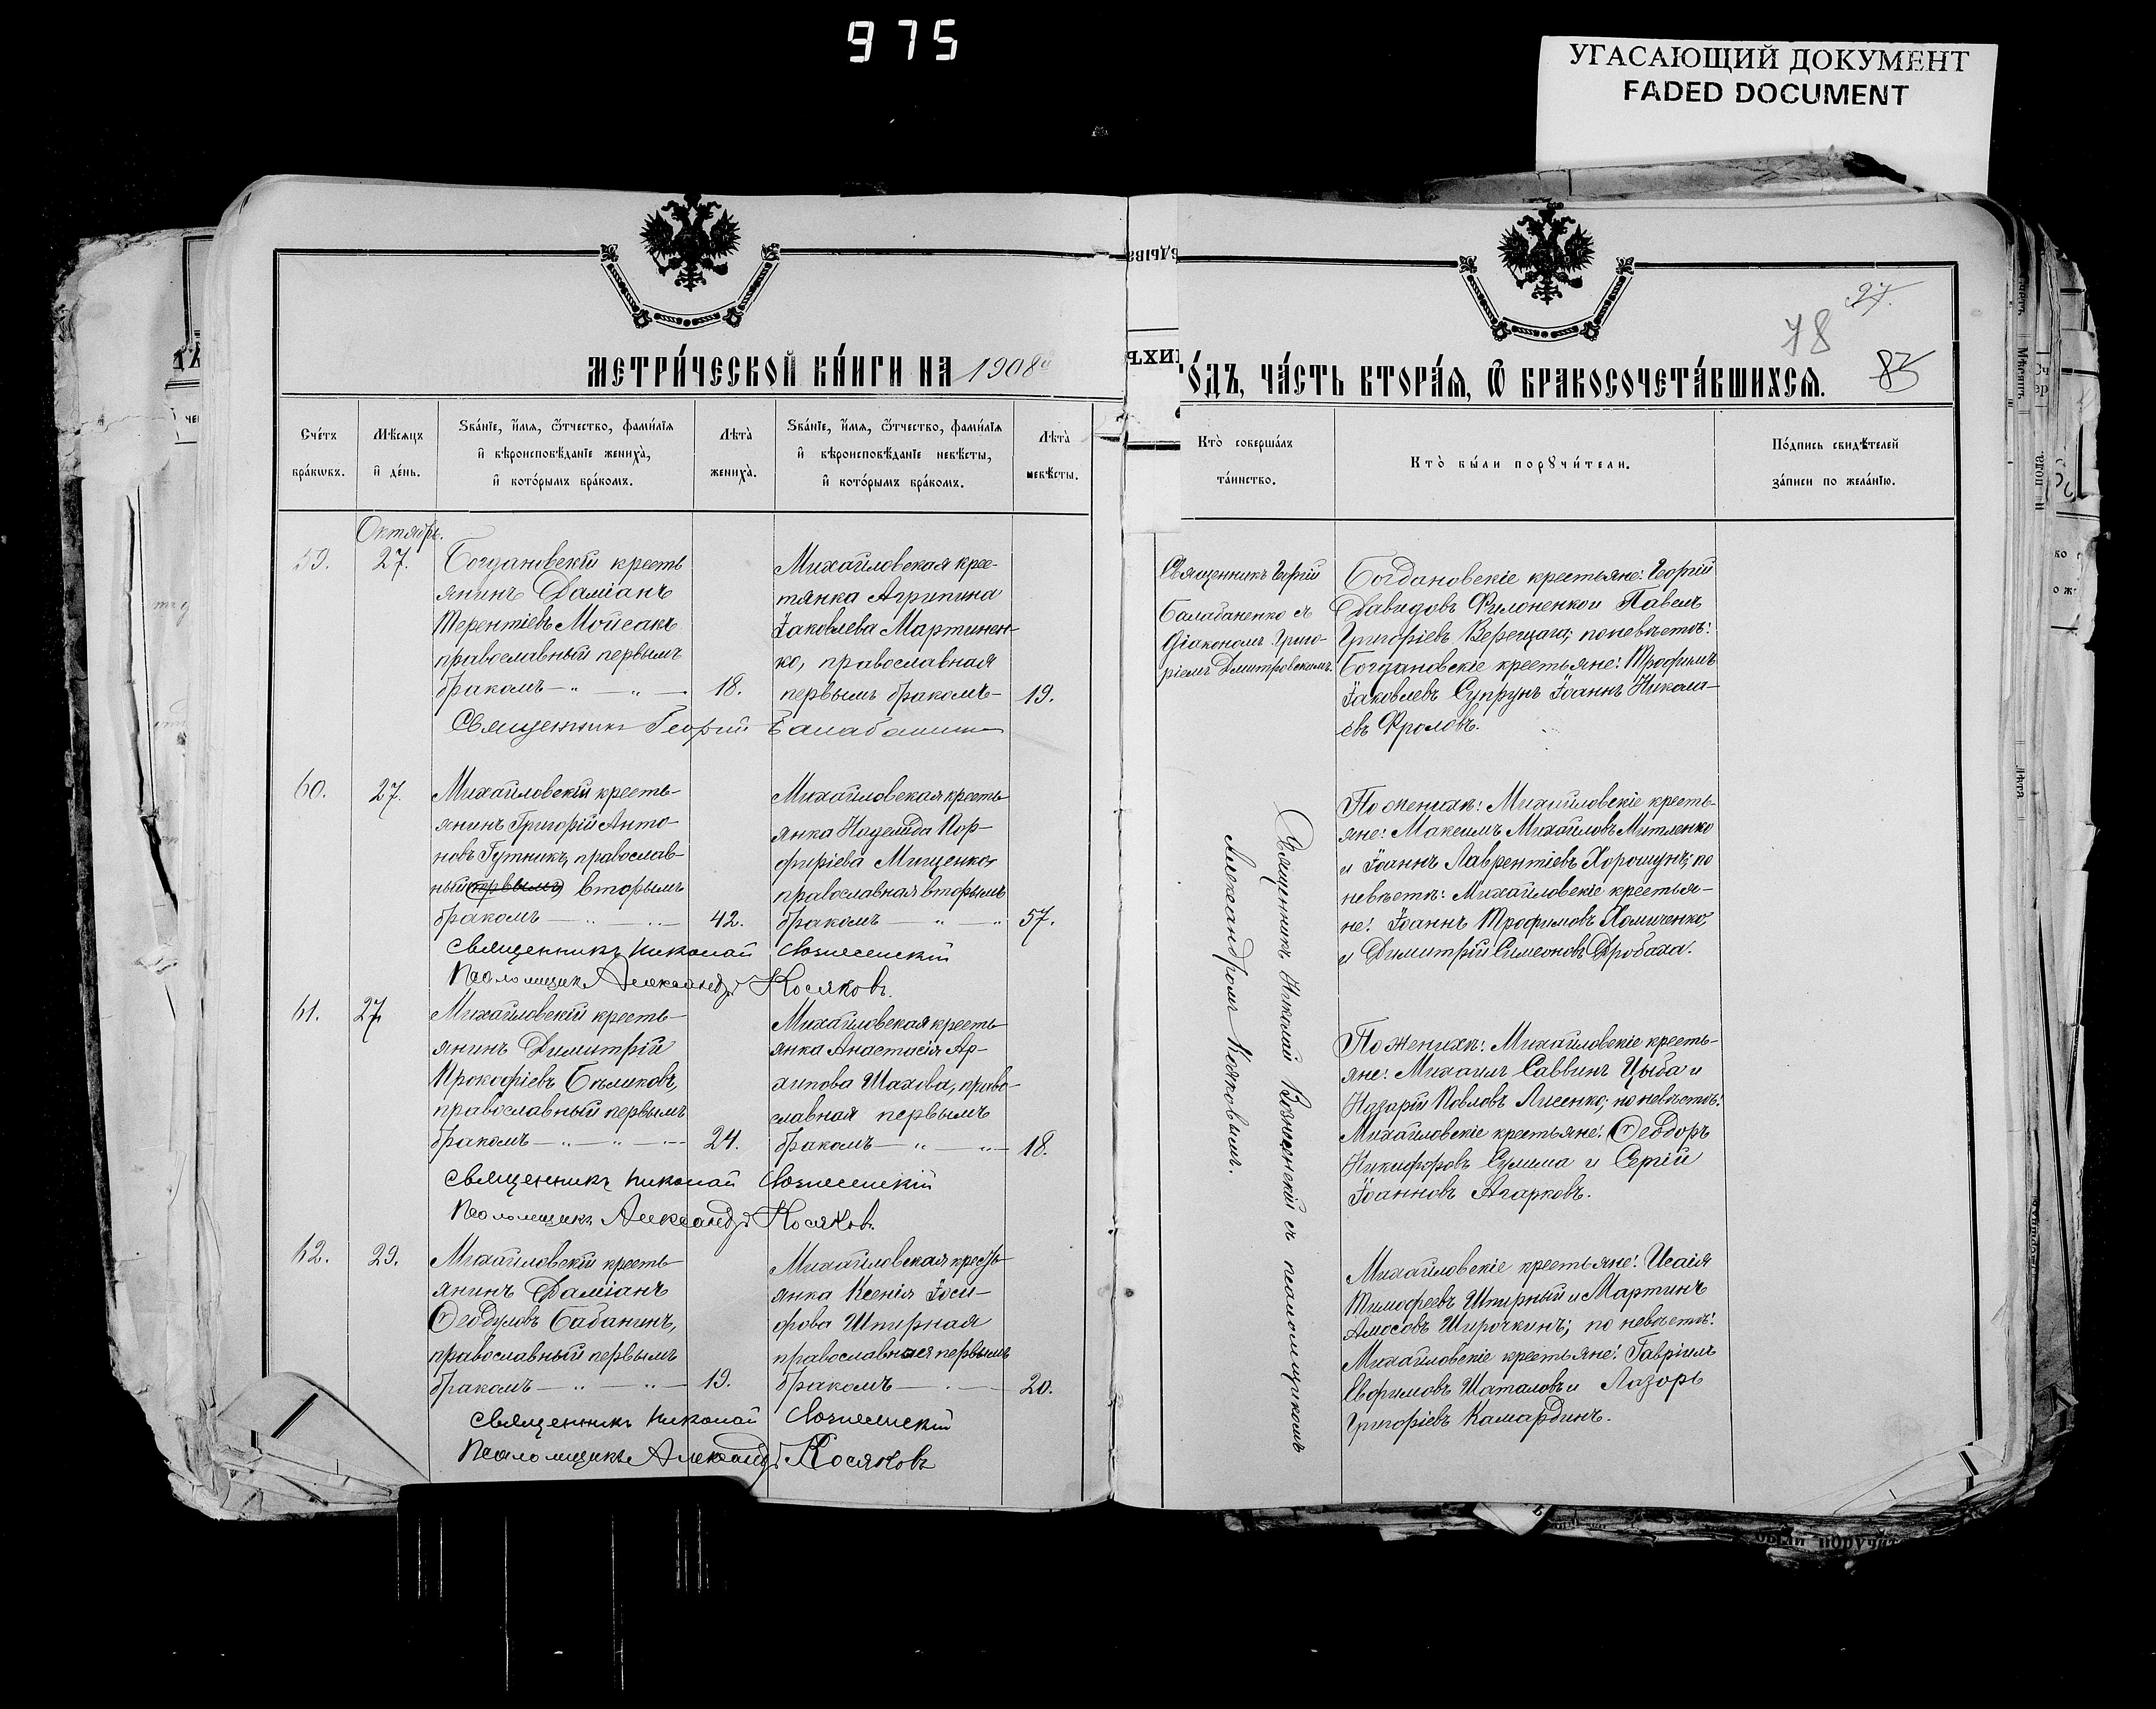 975
УГАСАЮЩИЙ ДОКУМЕНТ
FADED DOCUMENT
27.
78
83
МЕТРИ́ЧЕСКОЙ КНИ́ГИ НА 1908й
ГО́ДЪ, ЧА́СТЬ ВТОРА́Я, Ѡ БРАКОСОЧЕТА́ВШИХСЯ.
Сче́тъ
бра́кѡвъ.
Мѣ́сяцъ
и҆ де́нь.
Ѕва́нїе, и҆́мя, ѻ҆́тчество, фами́лїя
и҆ вѣроисповѣ́данїе жениха̀,
и҆ кото́рымъ бра́комъ.
Лѣта̀
жениха̀.
Ѕва́нїе, и҆́мя, ѻ҆́тчество, фами́лїя
и҆ вѣроисповѣ́данїе невѣ́сты,
и҆ кото́рымъ бра́комъ.
Лѣта̀
невѣ́сты.
Кто̀ соверша́лъ
та́инство.
Кто̀ бы́ли порꙋчи́тели.
По́дпись свидѣ́телей
за́писи по жела́нїю.
Октябрь.
59.
27.
Богдановскій кресть
янинъ Даміанъ
Терентіевъ Мойсакъ
православный первымъ
бракомъ — „ — „ —
18.
Михайловская крес-
тянка Агрипина
Іаковлева Мартинен-
ко, православная
первымъ бракомъ —
19.
Священникъ Георгій
Балабаненко съ
діакономъ Григо-
ріемъ Дмитровскимъ.
Богдановскіе крестьяне: Георгій
Давидовъ Филоненко и Павелъ
Григоріевъ Верещага; по невѣстѣ:
Богдановскіе крестьяне: Трофимъ
Іаковлевъ Супрунъ Іоаннъ Никола-
евъ Фроловъ.
Священникъ Георгій Балабаненко
60.
27.
Михайловскій кресть-
янинъ Григорій Анто-
новъ Гутникъ, православ-
ный (первымъ) вторымъ
бракомъ — „ — „ —
42.
Михайловская кресть
янка Надежда Пор-
фиріева Мищенко,
православная вторымъ
бракомъ — „ „
57.
Священникъ Николай Вознесенскій съ псаломщикомъ
Александромъ Косяковымъ.
По женихѣ: Михайловскіе кресть-
яне: Максимъ Михайловъ Митленко
и Іоаннъ Лаврентіевъ Хорошунъ; по
невѣстѣ: Михайловскіе крестья-
не: Іоаннъ Трофимовъ Хомиченко,
и Димитрій Симеоновъ Дробаха.
Священникъ Николай Вознесенскій
Псаломщикъ Александръ Косяковъ.
61.
27.
Михайловскій кресть-
янинъ Димитрій
Прокофіевъ Бѣликовъ,
православный первымъ
бракомъ — „ — „ —
24.
Михайловская кресть
янка Анастасія Ар-
хипова Шахова, право-
славная первымъ
бракомъ — „ — „ —
18.
По женихѣ: Михайловскіе кресть-
яне: Михаилъ Саввинъ Цыба и
Назарій Павловъ Лисенко; по невѣстѣ:
Михайловскіе крестьяне: Ѳеодоръ
Никифоровъ Сулима и Сергій
Іоанновъ Агарковъ.
Священникъ Николай Вознесенскій
Псаломщикъ Александръ Косяковъ.
62.
29.
Михайловскій кресть
янинъ Даміанъ
Ѳеодуловъ Бабанинъ,
православный первымъ
бракомъ — „ — „ —
19.
Михайловская кресть-
янка Ксенія Іоси-
фова Шпирная
православная первымъ
бракомъ — „ —
20.
Михайловскіе крестьяне: Исаія
Тимофеевъ Шпирный и Мартинъ
Амосовъ Широчкинъ; по невѣстѣ:
Михайловскіе крестьяне: Гавріилъ
Евфимовъ Шаталовъ и Лазарь
Григоріевъ Камардинъ.
Священникъ Николай Вознесенскій
Псаломщикъ Александръ Косяковъ